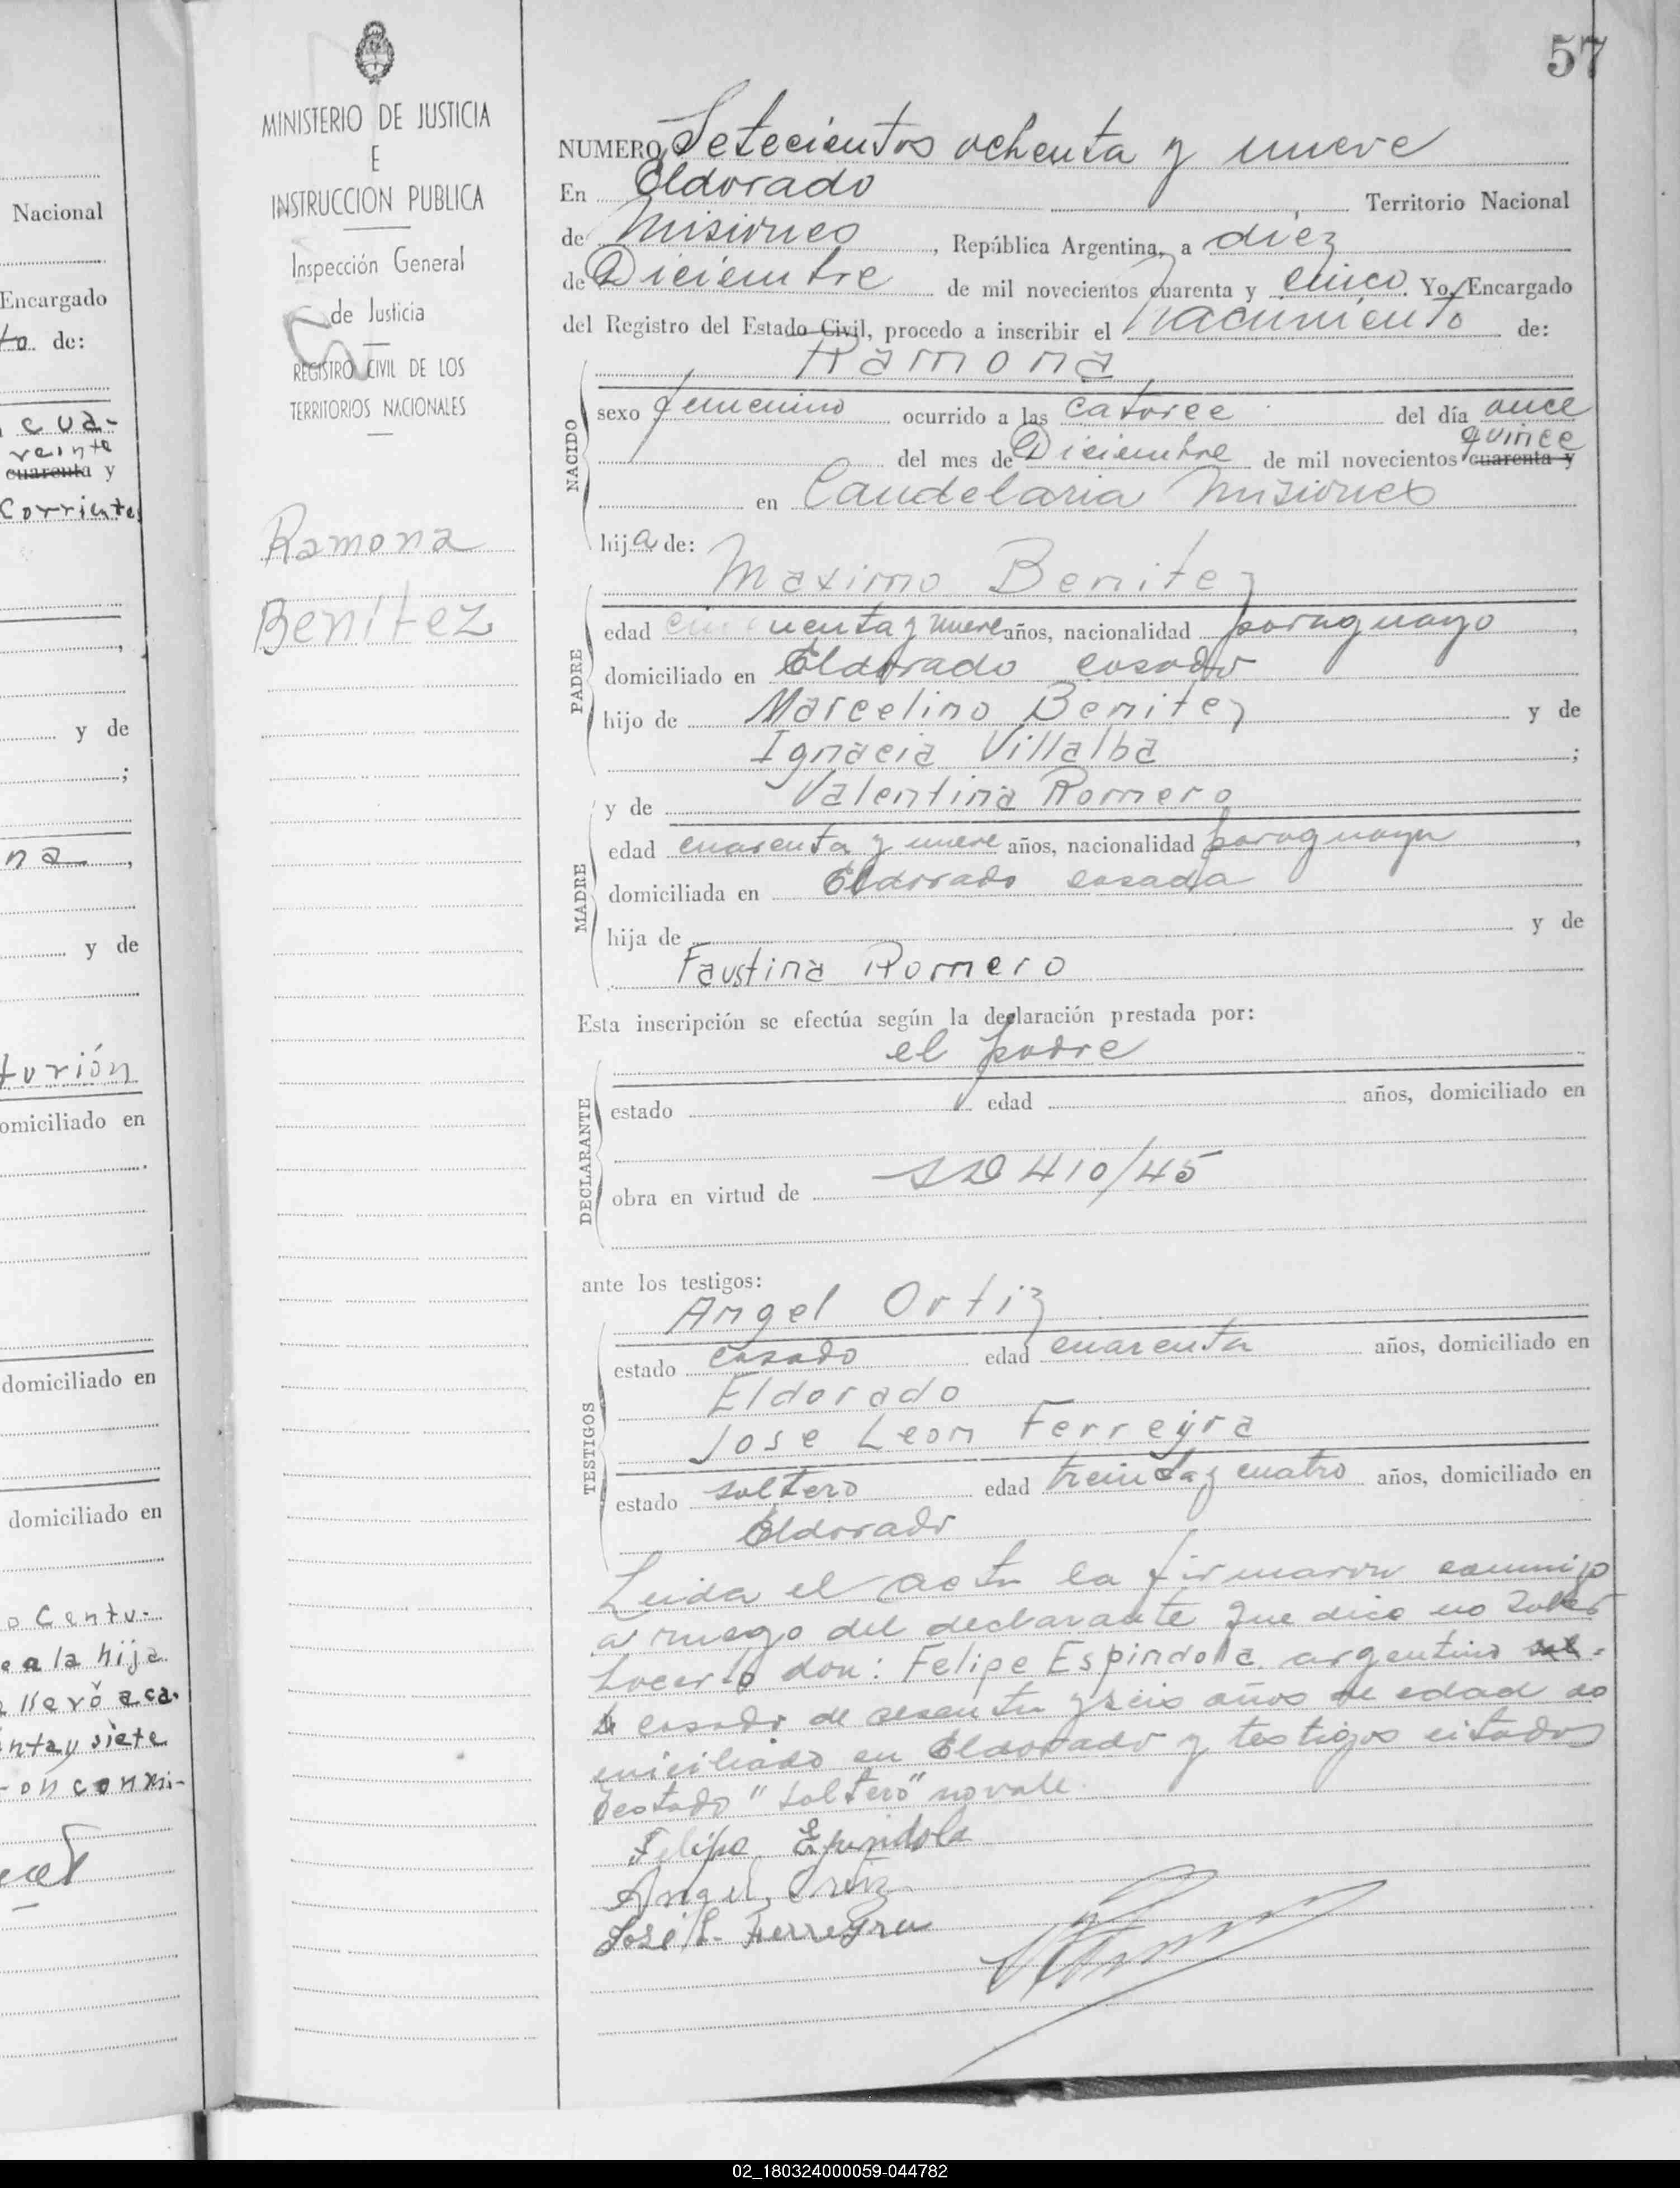 57
MINISTERIO DE JUSTICIA
E
INSTRUCCION PUBLICA
Inspección General
de Justicia
REGISTRO CIVIL DE LOS
TERRITORIOS NACIONALES
Ramona
Benítez
NUMERO Setecientos ochenta y nueve
En Eldorado Territorio Nacional
de Misiones, República Argentina, a diez
de Diciembre de mil novecientos cuarenta y cinco Yo, Encargado
del Registro del Estado Civil, procedo a inscribir el Nacimiento de:
Ramona
NACIDO
sexo femenino ocurrido a las catorce del día once
quince
del mes de Diciembre de mil novecientos cuarenta y
en Candelaria Misiones
hija de:
Maximo Benitez
PADRE
edad cincuenta y nueve años, nacionalidad paraguayo,
domiciliado en Eldorado casado
hijo de Marcelino Benitez y de
Ignacia Villalba;
y de Valentina Romero
MADRE
edad cuarenta y nueve años, nacionalidad paraguaya,
domiciliada en Eldorado casada
hija de y de
Faustina Romero
Esta inscripción se efectúa según la declaración prestada por:
el padre
DECLARANTE
estado edad años, domiciliado en
obra en virtud de 410/45
ante los testigos:
Angel Ortiz
TESTIGOS
estado casado edad cuarenta años, domiciliado en
Eldorado
Jose Leon Ferreyra
estado soltero edad treinta y cuatro años, domiciliado en
Eldorado
Leida el acta la firmaron conmigo
a ruego del declarante que dice no saber
hacerlo don: Felipe Espindola argentino
casado de sesenta y seis años de edad do
miciliado en Eldorado y testigos citados
Testado "soltero" no vale.
Felipe Espindola
Angel Ortiz
José L. Ferreyra
Nacional
Encargado
to de:
cua-
veinte
cuarenta y
Corrientes
y de
na,
y de
turión
domiciliado en
domiciliado en
domiciliado en
o Centu-
e a la hija
llevó a ca-
nta y siete
on conmi-
02_180324000059-044782